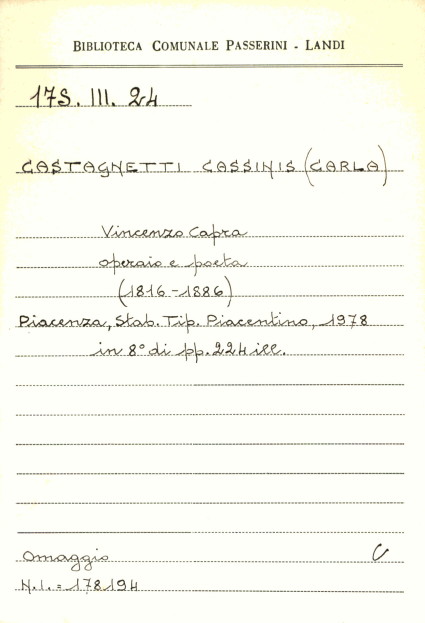 BIBLIOTECA COMUNALE PASSERINI - LANDI
17S. III. 24
CASTAGNETTI CASSINIS (CARLA)
Vincenzo Capra
operaio e poeta
(1816-1886)
Piacenza, Stab. Tip. Piacentino, 1978
in 8° di pp. 224 ill.
Omaggio C
N.I. = 178194